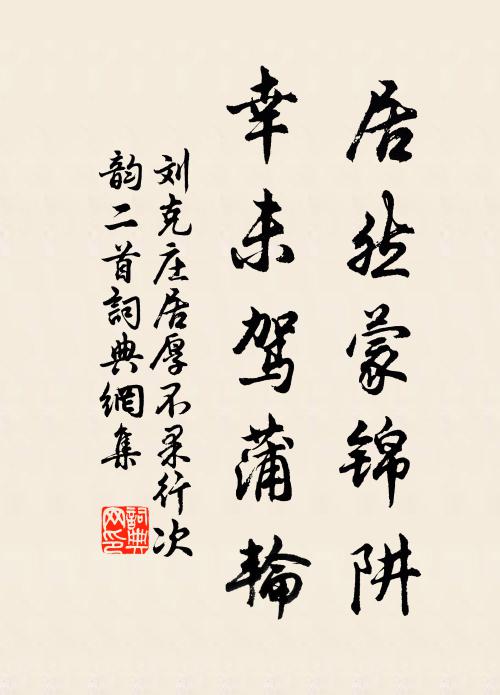 居然蒙锦阱
幸未驾蒲轮
刘克庄居厚不果行次
韵二首詞典網集
詞典网印